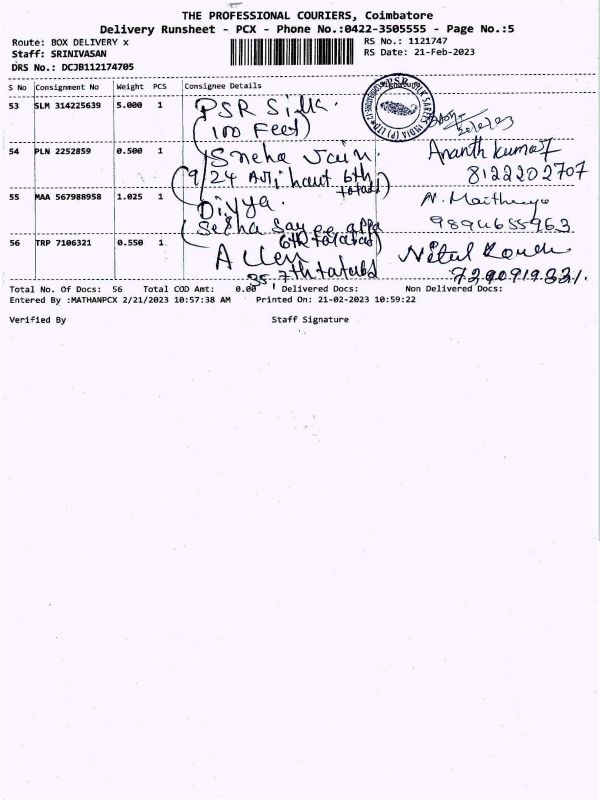 THE PROFESSIONAL COURIERS, Coimbatore
Delivery Runsheet - PCX - Phone No.:0422-3505555 - Page No.:5
Route: BOX DELIVERY x RS No.: 1121747
Staff: SRINIVASAN RS Date: 21-Feb-2023
DRS No.: DCJB112174705
S No Consignment No Weight PCS Consignee Details
53 SLM 314225639 5.000 1 PSR Silk.
(100 Feet)
54 PLN 2252859 0.500 1 Sneha Jain. Ananth kumar
(9/24 6th 8122202707
55 MAA 567988958 1.025 1 Divya. N.
6th 9894655963
56 TRP 7106321 0.550 1 Allen
35, 7th 7390919321.
Total No. Of Docs: 56 Total COD Amt: 0.00 Delivered Docs: Non Delivered Docs:
Entered By :MATHANPCX 2/21/2023 10:57:38 AM Printed On: 21-02-2023 10:59:22
Verified By Staff Signature